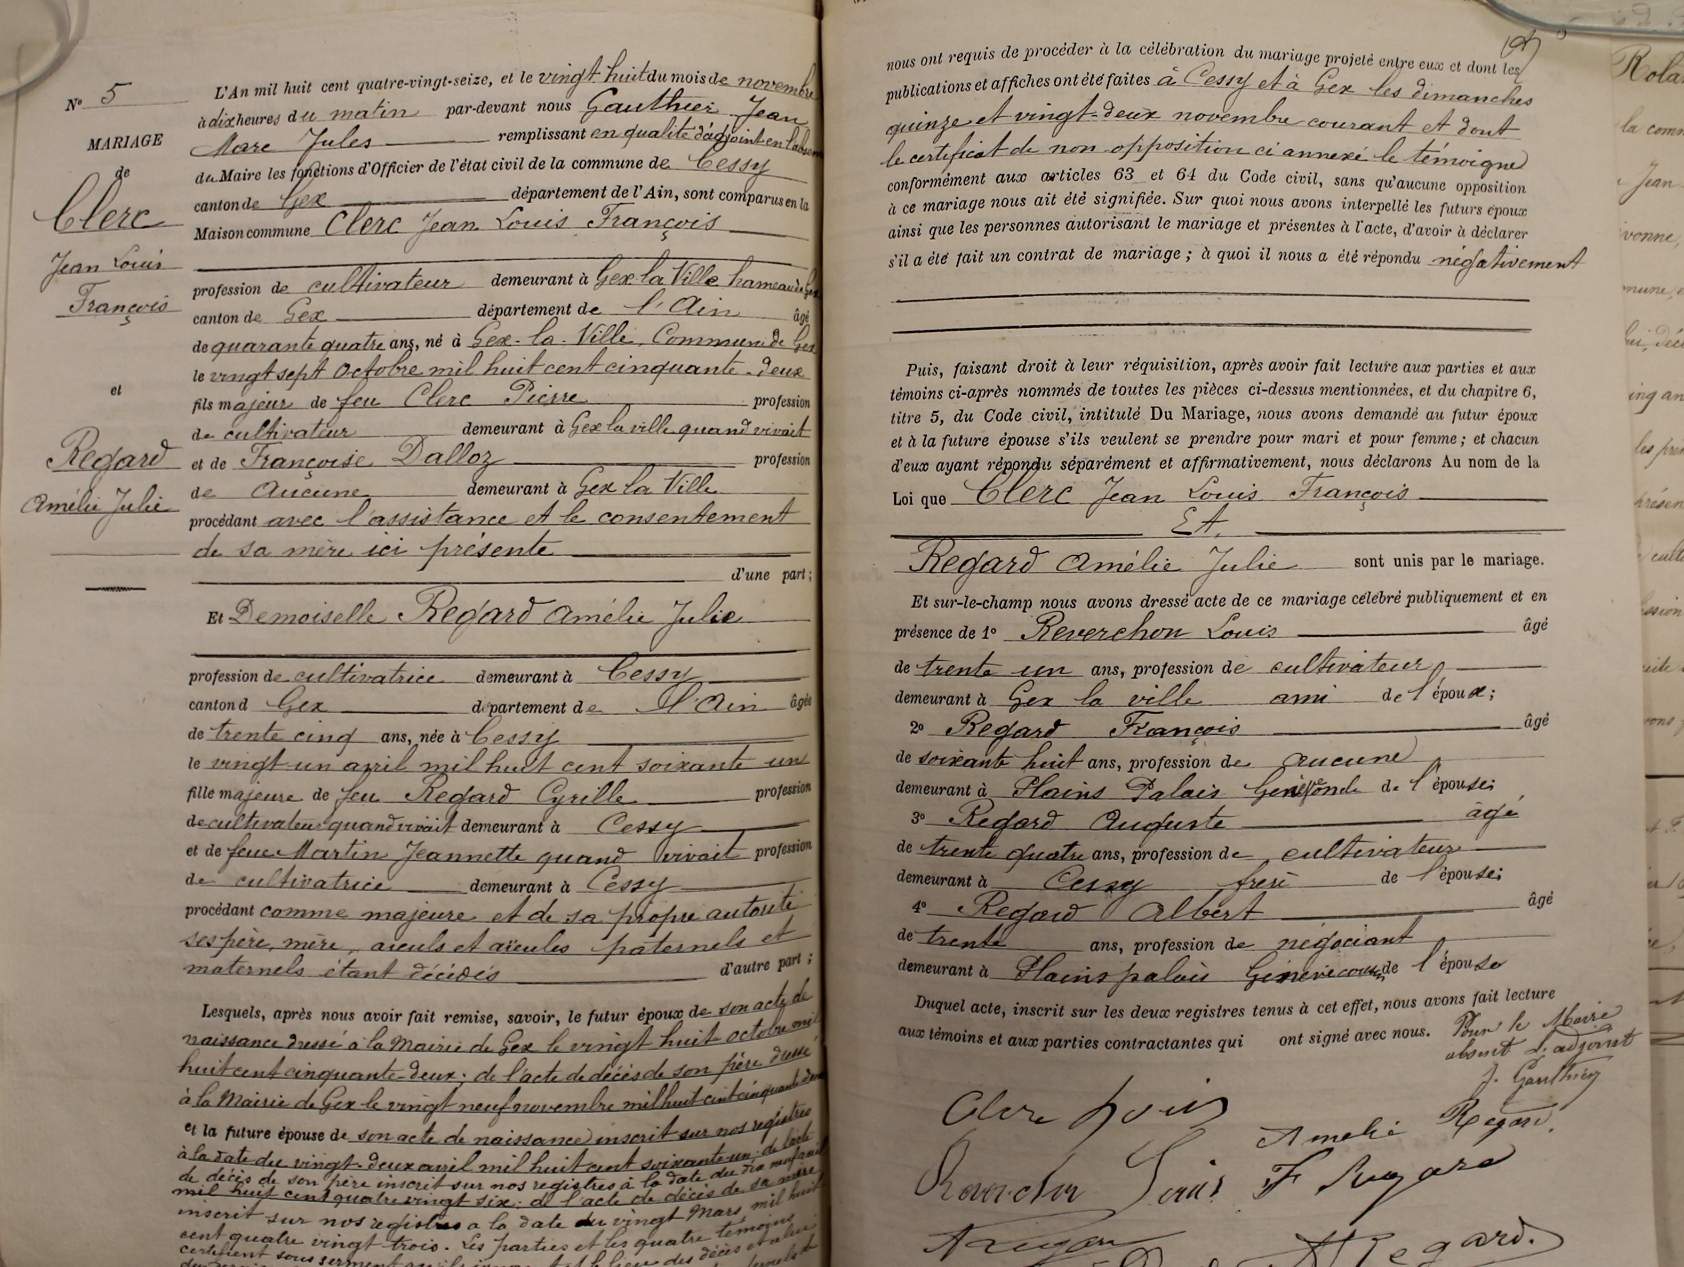 N° 5
MARIAGE
de
Clerc
Jean Louis
François
et
Regard
Amélie Julie
L'An mil huit cent quatre-vingt-seize, et le vingt huit du mois de novembre
à dix heures du matin par-devant nous Gauthier Jean
Marc Jules remplissant en qualité d'adjoint en l'absence
du Maire les fonctions d'Officier de l'état civil de la commune de Cessy
canton de Gex département de l'Ain, sont comparus en la
Maison commune Clerc Jean Louis François
profession de cultivateur demeurant à Gex la Ville hameau de Gex
canton de Gex département de l'Ain âgé
de quarante quatre ans, né à Gex-la-Ville, Commune de Gex
le vingt sept Octobre mil huit cent cinquante-deux
fils majeur de feu Clerc Pierre profession
de cultivateur demeurant à Gex la ville quand vivait
et de Françoise Dalloz profession
de Aucune demeurant à Gex la Ville
procédant avec l'assistance et le consentement
de sa mère ici présente
d'une part;
Et Demoiselle Regard Amélie Julie
profession de cultivatrice demeurant à Cessy
canton d Gex département de l'Ain âgée
de trente cinq ans, née à Cessy
le vingt-un avril mil huit cent soixante un
fille majeure de feu Regard Cyrille profession
de cultivateur quand vivait demeurant à Cessy
et de feue Martin Jeannette quand vivait profession
de cultivatrice demeurant à Cessy
procédant comme majeure et de sa propre autorité
ses père, mère, aïeuls et aïeules paternels et
maternels étant décédés d'autre part;
Lesquels, après nous avoir fait remise, savoir, le futur époux de son acte de
naissance dressé à la Mairie de Gex le vingt huit octobre mil
huit cent cinquante-deux; de l'acte de décès de son père dressé
à la Mairie de Gex le vingt neuf novembre mil huit cent cinquante
et la future épouse de son acte de naissance inscrit sur nos registres
à la date du vingt-deux avril mil huit cent soixante un; de l'acte
de décès de son père inscrit sur nos registres à la date du dix neuf avril
mil huit cent quatre vingt six; de l'acte de décès de sa mère
inscrit sur nos registres à la date du vingt Mars mil huit
cent quatre vingt trois. Les parties et les quatre témoins
certifient sous serment
nous ont requis de procéder à la célébration du mariage projeté entre eux et dont les
publications et affiches ont été faites à Cessy et à Gex les dimanches
quinze et vingt-deux novembre courant et dont
le certificat de non opposition ci annexé le témoigne
conformément aux articles 63 et 64 du Code civil, sans qu'aucune opposition
à ce mariage nous ait été signifiée. Sur quoi nous avons interpellé les futurs époux
ainsi que les personnes autorisant le mariage et présentes à l'acte, d'avoir à déclarer
s'il a été fait un contrat de mariage; à quoi il nous a été répondu négativement
Puis, faisant droit à leur réquisition, après avoir fait lecture aux parties et aux
témoins ci-après nommés de toutes les pièces ci-dessus mentionnées, et du chapitre 6,
titre 5, du Code civil, intitulé Du Mariage, nous avons demandé au futur époux
et à la future épouse s'ils veulent se prendre pour mari et pour femme; et chacun
d'eux ayant répondu séparément et affirmativement, nous déclarons Au nom de la
Loi que Clerc Jean Louis François
Et
Regard Amélie Julie sont unis par le mariage.
Et sur-le-champ nous avons dressé acte de ce mariage célébré publiquement et en
présence de 1° Reverchon Louis âgé
de trente un ans, profession de cultivateur
demeurant à Gex la ville ami de l'époux;
2° Regard François âgé
de soixante huit ans, profession de aucune
demeurant à Plains Palais Genève oncle de l'épouse;
3° Regard Auguste âgé
de trente quatre ans, profession de cultivateur
demeurant à Cessy frère de l'épouse;
4° Regard Albert âgé
de trente ans, profession de négociant
demeurant à Plainspalais Genève cousin de l'épouse
Duquel acte, inscrit sur les deux registres tenus à cet effet, nous avons fait lecture
aux témoins et aux parties contractantes qui ont signé avec nous. Pour le Maire
absent L'adjoint
J. Gauthier
Clerc Louis
Amélie Regard.
Reverchon Louis F Regard
A Regard
A Regard.